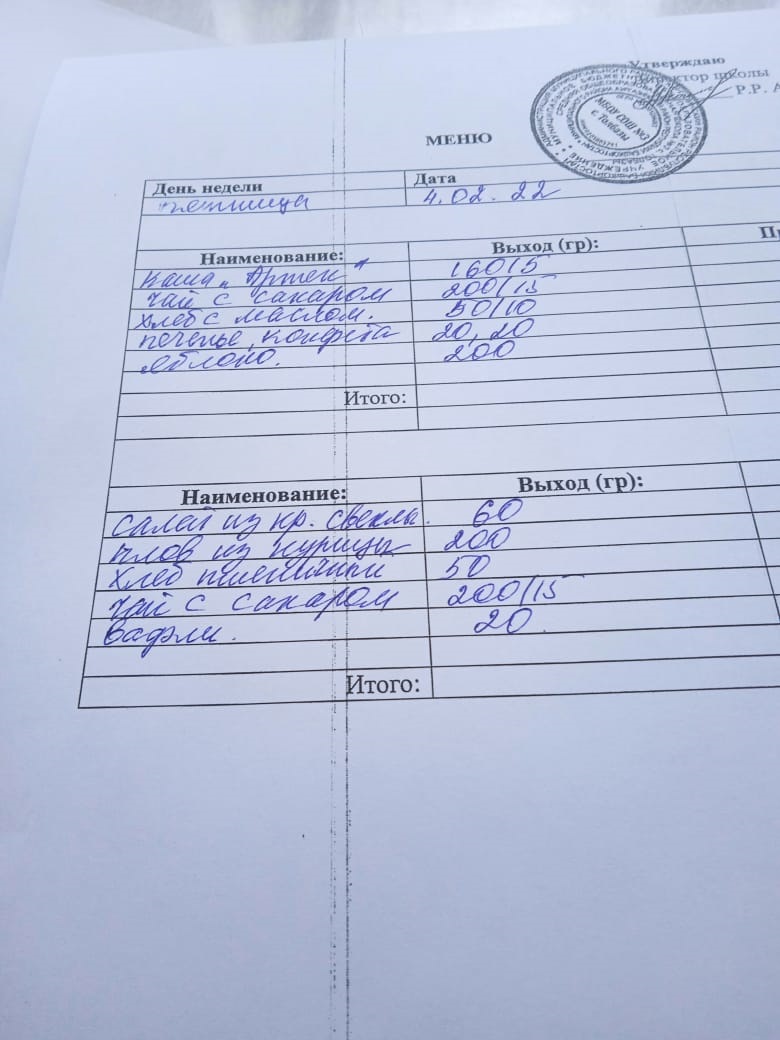 Утверждаю
директор школы
Р.Р. А
МБОУ СОШ №3
с. Толбазы
МЕНЮ
День недели Дата
пятница 4.02.22
Наименование: Выход (гр): Пр
каша "Артек" 160/5
чай с сахаром 200/15
хлеб с маслом. 50/10
печенье, конфета 20, 20
яблоко. 200
Итого:
Наименование: Выход (гр):
салат из кр. свеклы. 60
плов из курицы 200
хлеб пшеничный 50
чай с сахаром 200/15
вафли. 20
Итого: